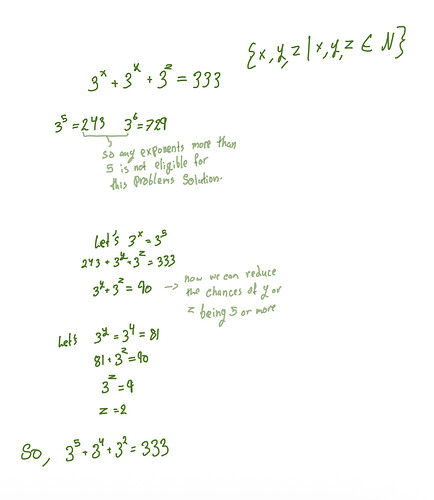 {x,y,z | x,y,z ∈ N}
3^x + 3^x + 3^z = 333
3^5 = 243 3^6 = 729
so any exponents more than
5 is not eligible for
this problems solution.
Let's 3^x = 3^5
243 + 3^y + 3^z = 333
3^y + 3^z = 90
→ now we can reduce
the chances of y or
z being 5 or more
Let's 3^y = 3^4 = 81
81 + 3^z = 90
3^z = 9
z = 2
So, 3^5 + 3^4 + 3^2 = 333